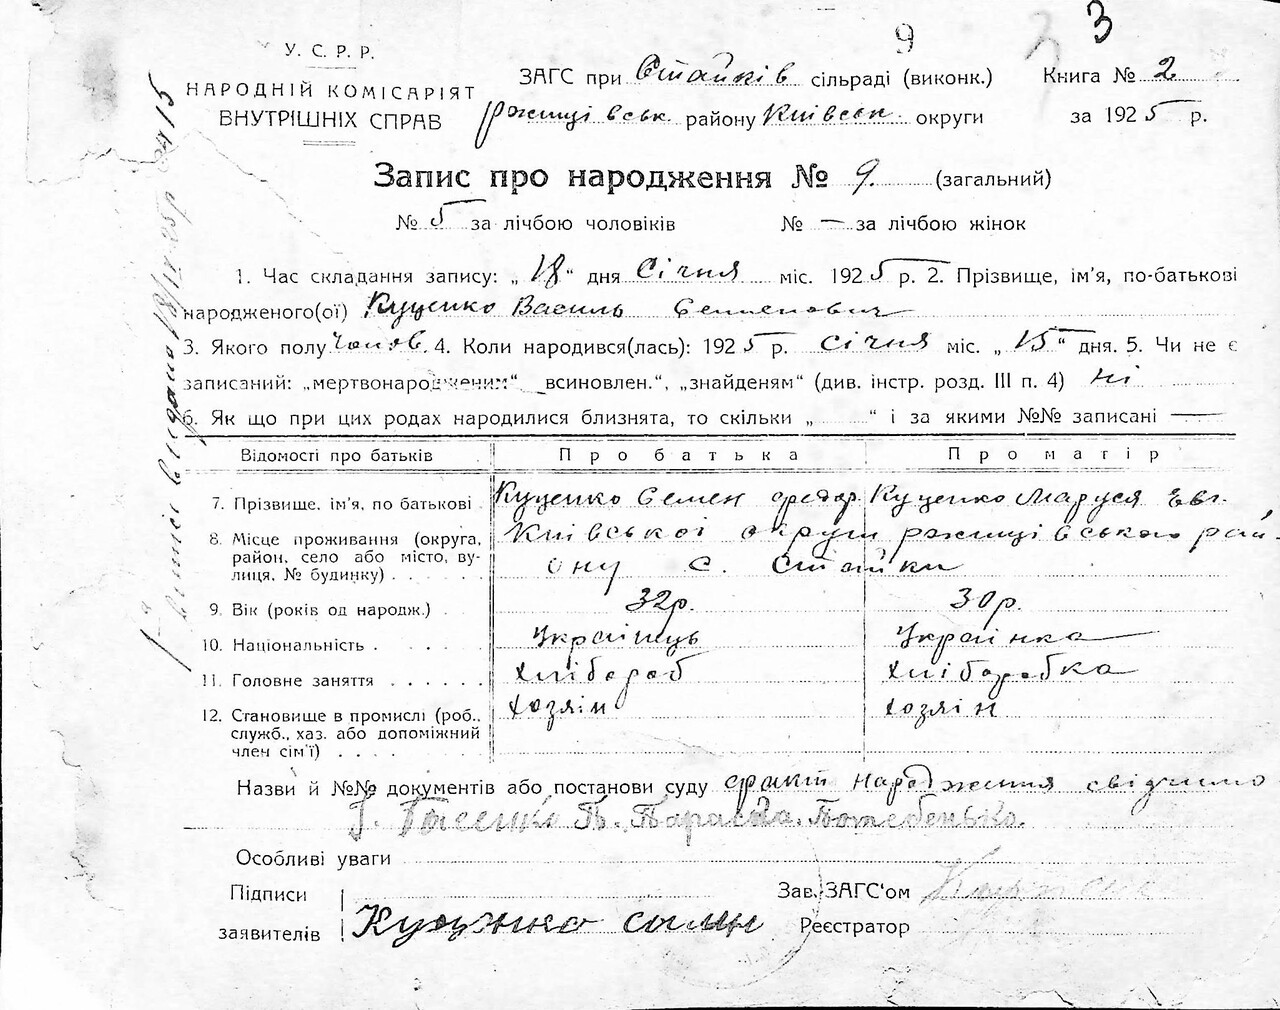 9 3
У. С. Р. Р.
НАРОДНІЙ КОМІСАРІЯТ
ВНУТРІШНІХ СПРАВ
ЗАГС при Стайків сільраді (виконк.) Книга № 2
ржищівськ району Київськ. округи за 1925 р.
Запис про народження № 9. (загальний)
№ 5 за лічбою чоловіків № — за лічбою жінок
1. Час складання запису: „18“ дня Січня міс. 1925 р. 2. Прізвище, ім'я, по-батькові
народженого(ої) Куценко Василь Семенович
3. Якого полу чолов. 4. Коли народився(лась): 1925 р. січня міс. „15“ дня. 5. Чи не є
записаний: „мертвонародженим“ „всиновлен.“, „знайденям“ (див. інстр. розд. III п. 4) ні
6. Як що при цих родах народилися близнята, то скільки „ “ і за якими №№ записані —
Відомості про батьків Про батька Про матір
7. Прізвище, ім'я, по батькові Куценко Семен федор. Куценко Маруся Євг.
8. Місце проживання (округа, Київської округи ржищівського рай-
район, село або місто, ву- ону с. Стайки
лиця, № будинку)
9. Вік (років од народж.) 32р. 30р.
10. Національність Українець Українка
11. Головне заняття Хлібороб Хліборобка
12. Становище в промислі (роб., Хозяїн Хозяїн
служб., хаз. або допоміжний
член сім'ї)
Назви й №№ документів або постанови суду факт народження свідчимо
Параска. Потебенько.
Особливі уваги
Підписи Зав. ЗАГС'ом
заявителів Куценко Реєстратор